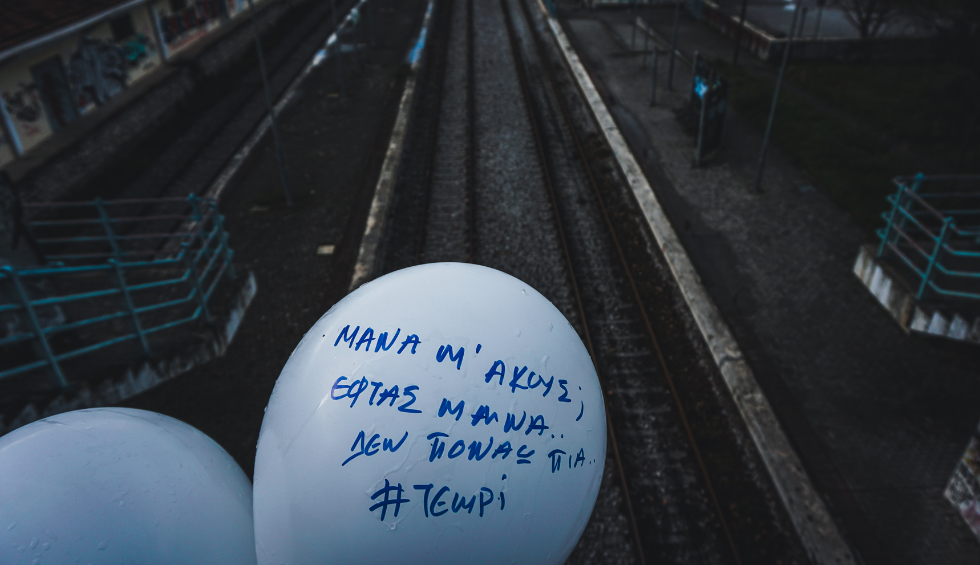 ΜΑΝΑ Μ' ΑΚΟΥΣ;
ΕΦΤΑΣ ΜΑΝΑ..
ΔΕΝ ΠΟΝΑΣ ΠΙΑ..
#TEMPi